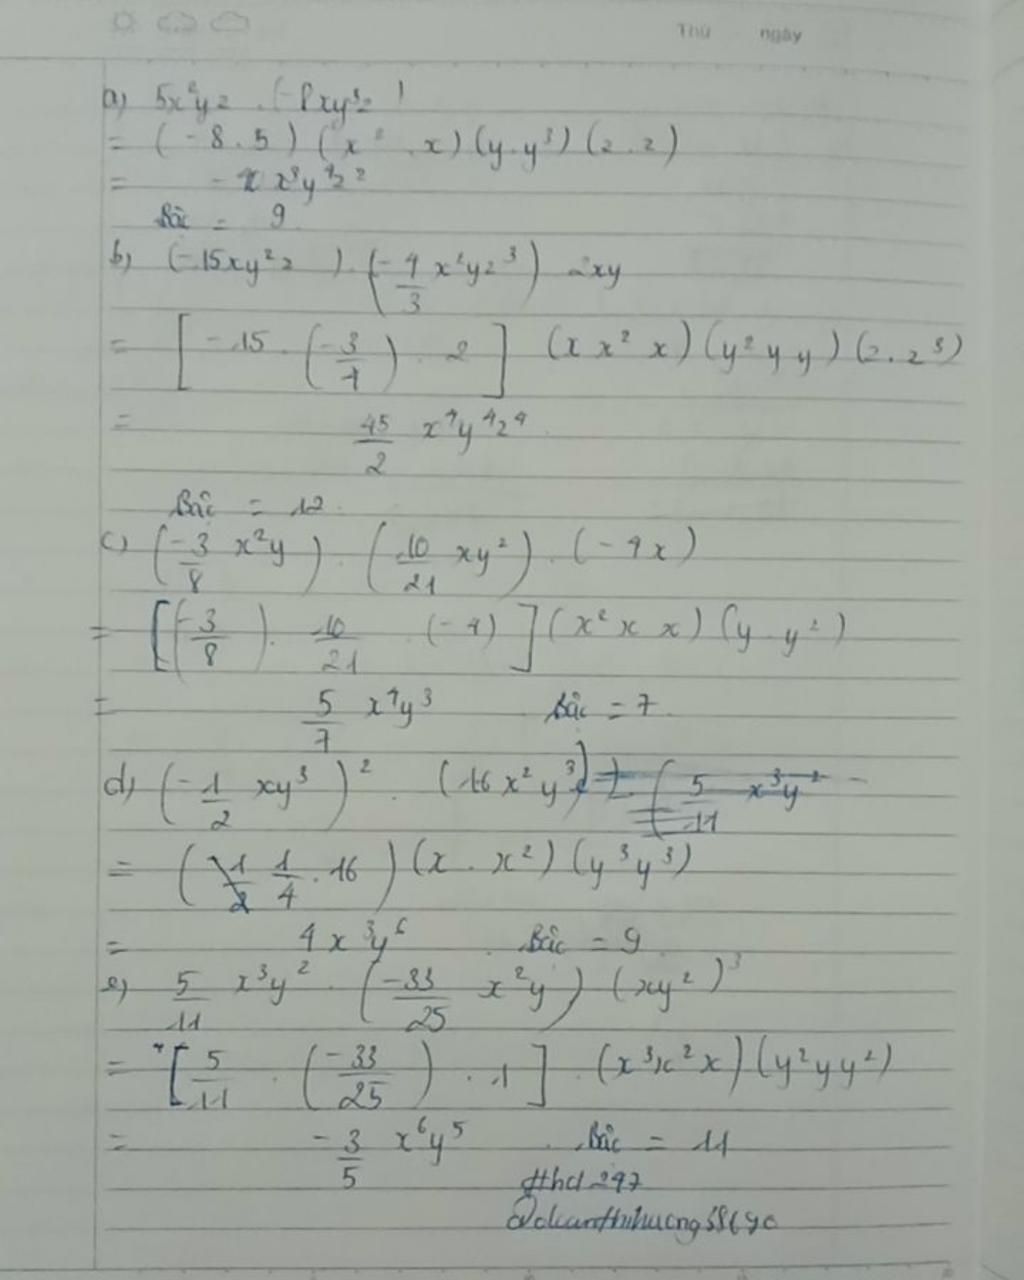 Thứ ngày
a) 5x²yz . (-8xy³z)
= (-8.5) (x² . x) (y.y³) (z.z)
= x³y⁴z²
Bậc = 9
b) (-15xy²z) . (-4/3 x²yz³) 2xy
= [-15 . (-3/4) . 2] (x x² x) (y² y y) (z.z³)
= 45/2 x⁴y⁴z⁴
Bậc = 12
c) (-3/8 x²y) . (10/21 xy²) . (-4x)
= [(-3/8) . 10/21 (-4)] (x² x x) (y . y²)
= 5/7 x⁴y³ Bậc = 7
d) (-1/2 xy³)² . (16x²y³)
= (1/4 . 16) (x . x²) (y³y³)
= 4x³y⁶ Bậc = 9
e) 5/11 x³y² . (-33/25 x²y) (xy²)³
= [5/11 . (-33/25) . 1] . (x³x²x) (y²yy²)
= -3/5 x⁶y⁵ Bậc = 11
#hd297